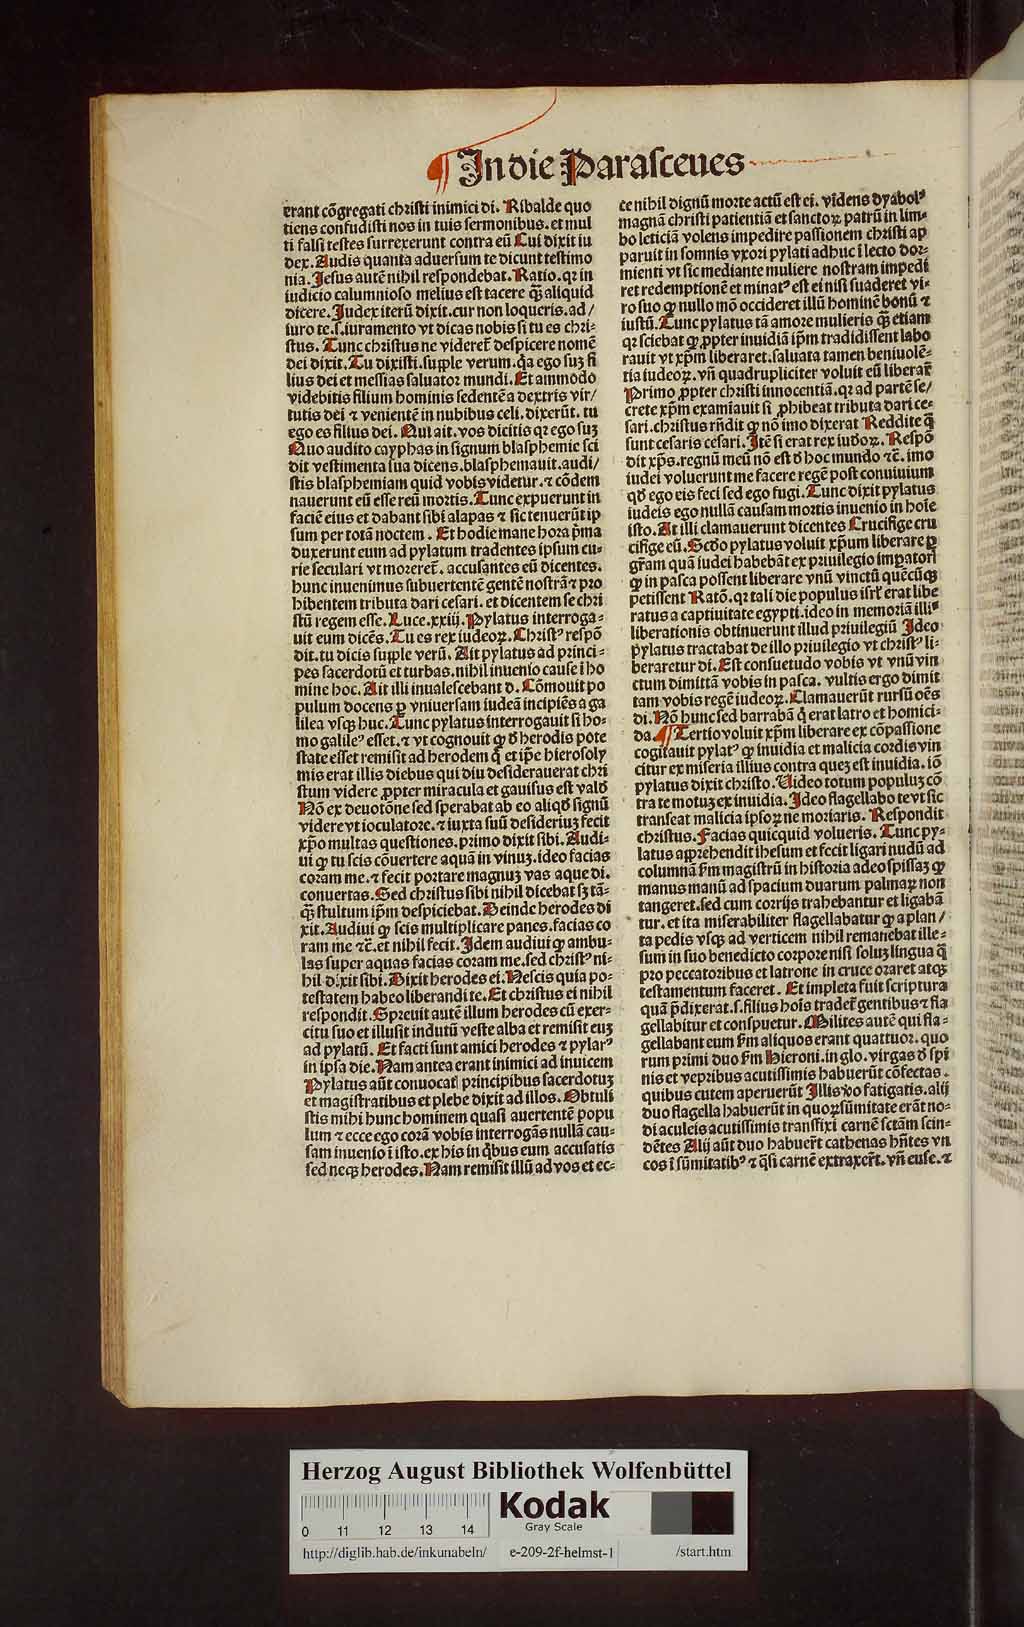 ¶ In die Parasceues
erant cõgregati christi inimici di. Ribalde quo
tiens confudisti nos in tuis sermonibus. et mul
ti falsi testes surrexerunt contra eũ Cui dixit iu
dex. Audis quanta aduersum te dicunt testimo
nia. Jesus autẽ nihil respondebat. Ratio. qꝛ in
iudicio calumnioso melius est tacere q̃ꝫ aliquid
dicere. Judex iterũ dixit. cur non loqueris. ad/
iuro te .s. iuramento vt dicas nobis si tu es chri-
stus. Tunc christus ne videret᷑ despicere nomẽ
dei dixit. Tu dixisti. supple verum. q̃a ego suꝫ fi
lius dei et messias saluator mundi. Et ammodo
videbitis filium hominis sedentẽ a dextris vir/
tutis dei ⁊ venientẽ in nubibus celi. dixerũt. tu
ego es filius dei. Qui ait. vos dicitis qꝛ ego suꝫ
Quo audito cayphas in signum blasphemie sci
dit vestimenta sua dicens. blasphemauit. audi/
stis blasphemiam quid vobis videtur. ⁊ cõdem
nauerunt eũ esse reũ mortis. Tunc expuerunt in
faciẽ eius et dabant sibi alapas ⁊ sic tenuerũt ip
sum per totã noctem. Et hodie mane hora p̃ma
duxerunt eum ad pylatum tradentes ipsum cu-
rie seculari vt moreret᷑. accusantes eũ dicentes.
hunc inuenimus subuertentẽ gentẽ nostrã ⁊ pro
hibentem tributa dari cesari. et dicentem se chri
stũ regem esse. Luce. xxiij. Pylatus interroga-
uit eum dicẽs. Tu es rex iudeoꝝ. Christꝰ respõ
dit. tu dicis supple verũ. Ait pylatus ad princi-
pes sacerdotũ et turbas. nihil inuenio cause ĩ ho
mine hoc. Ait illi inualescebant d. Cõmouit po
pulum docens ꝑ vniuersam iudeã incipiẽs a ga
lilea vsqꝫ huc. Tunc pylatus interrogauit si ho-
mo galileꝰ esset. ⁊ vt cognouit ꝙ d̾ herodis pote
state esset remisit ad herodem q̇ et ip̃e hierosoly
mis erat illis diebus qui diu desiderauerat chri
stum videre ꝓpter miracula et gauisus est vald̾
Nõ ex deuotõne sed sperabat ab eo aliqd̾ signũ
videre vt ioculatore. ⁊ iuxta suũ desideriuꝫ fecit
xp̃o multas questiones. primo dixit sibi. Audi-
ui ꝙ tu scis cõuertere aquã in vinuꝫ. ideo facias
coram me. ⁊ fecit portare magnuꝫ vas aque di.
conuertas. Sed christus sibi nihil dicebat sꝫ tã-
q̃ꝫ stultum ip̃m despiciebat. Deinde herodes di
xit. Audiui ꝙ scis multiplicare panes. facias co
ram me ⁊c̃. et nihil fecit. Idem audiui ꝙ ambu-
las super aquas facias coram me. sed christꝰ ni-
hil dixit sibi. Dixit herodes ei. Nescis quia po-
testatem habeo liberandi te. Et christus ei nihil
respondit. Spreuit autẽ illum herodes cũ exer-
citu suo et illusit indutũ veste alba et remisit euꝫ
ad pylatũ. Et facti sunt amici herodes ⁊ pylatꝰ
in ipsa die. Nam antea erant inimici ad inuicem
Pylatus aũt conuocatꝭ principibus sacerdotuꝫ
et magistratibus et plebe dixit ad illos. Obtuli
stis mihi hunc hominem quasi auertentẽ popu
lum ⁊ ecce ego corã vobis interrogãs nullã cau-
sam inuenio ĩ isto. ex his in q̇bus eum accusatis
sed neqꝫ herodes. Nam remisit illũ ad vos et ec-
ce nihil dignũ morte actũ est ei. videns dyabolꝰ
magnã christi patientiã et sanctoꝝ patrũ in lim-
bo leticiã volens impedire passionem christi ap
paruit in somnis vxori pylati adhuc ĩ lecto dor-
mienti vt sic mediante muliere nostram impedi
ret redemptionẽ et minatꝰ est ei nisi suaderet vi-
ro suo ꝙ nullo mõ occideret illũ hominẽ bonũ ⁊
iustũ. Tunc pylatus tã amore mulieris q̃ꝫ etiam
qꝛ sciebat ꝙ ꝓpter inuidiã ip̃m tradidissent labo
rauit vt xp̃m liberaret. saluata tamen beniuolẽ-
tia iudeoꝝ. vñ quadrupliciter voluit eũ liberar̃
Primo ꝓpter christi innocentiã. qꝛ ad partẽ se/
crete xp̃m examiauit si ꝓhibeat tributa dari ce-
sari. christus rñdit ꝙ nõ imo dixerat Reddite q̃
sunt cesaris cesari. Itẽ si erat rex iudoꝝ. Respõ
dit xp̃s. regnũ meũ nõ est d̾ hoc mundo ⁊c̃. imo
iudei voluerunt me facere regẽ post conuiuium
qd̾ ego eis feci sed ego fugi. Tunc dixit pylatus
iudeis ego nullã causam mortis inuenio in hoĩe
isto. At illi clamauerunt dicentes Crucifige cru
cifige eũ. Scd̾o pylatus voluit xp̃um liberare ꝑ
gr̃am quã iudei habebãt ex priuilegio impatorꝭ
ꝙ in pasca possent liberare vnũ vinctũ quẽcũqꝫ
petissent Ratõ. qꝛ tali die populus isrl̾ erat libe
ratus a captiuitate egypti. ideo in memoriã illiꝰ
liberationis obtinuerunt illud priuilegiũ Ideo
pylatus tractabat de illo priuilegio vt christꝰ li-
beraretur di. Est consuetudo vobis vt vnũ vin
ctum dimittã vobis in pasca. vultis ergo dimit
tam vobis regẽ iudeoꝝ. Clamauerũt rursũ oẽs
di. Nõ hunc sed barrabã q̇ erat latro et homici-
da. ¶ Tertio voluit xp̃m liberare ex cõpassione
cogitauit pylatꝰ ꝙ inuidia et malicia cordis vin
citur ex miseria illius contra queꝫ est inuidia. iõ
pylatus dixit christo. Uideo totum populuꝫ cõ
tra te motuꝫ ex inuidia. Ideo flagellabo te vt sic
transeat malicia ipsoꝝ ne moriaris. Respondit
christus. Facias quicquid volueris. Tunc py-
latus apprehendit ihesum et fecit ligari nudũ ad
columnã s̃m magistrũ in historia adeo spissaꝫ ꝙ
manus manũ ad spacium duarum palmaꝝ non
tangeret. sed cum corrijs trahebantur et ligabã
tur. et ita miserabiliter flagellabatur ꝙ a plan/
ta pedis vsqꝫ ad verticem nihil remanebat ille-
sum in suo benedicto corpore nisi soluꝫ lingua q̃
pro peccatoribus et latrone in cruce oraret atqꝫ
testamentum faceret. Et impleta fuit scriptura
quã p̃dixerat .s. filius hoĩs tradet᷑ gentibus ⁊ fla
gellabitur et conspuetur. Milites autẽ qui fla-
gellabant eum s̃m aliquos erant quattuor. quo
rum primi duo s̃m Hieroni. in glo. virgas d̾ spi
nis et vepribus acutissimis habuerũt cõfectas.
quibus cutem aperuerũt Illis v̾o fatigatis. alij
duo flagella habuerũt in quoꝝ sũmitate erãt no-
di aculeis acutissimis transfixi carnẽ sctãm scin-
dẽtes Alij aũt duo habuer̃t cathenas hñtes vn
cos ĩ sũmitatibꝰ ⁊ q̃si carnẽ extraxer̃t. vñ euse. ⁊
Herzog August Bibliothek Wolfenbüttel
Kodak
Gray Scale
0 11 12 13 14
http://diglib.hab.de/inkunabeln/ e-209-2f-helmst-1 /start.htm